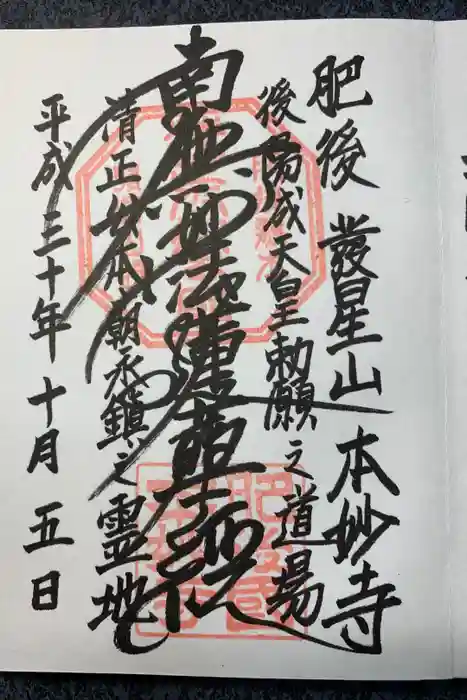 肥後 発星山 本妙寺
後陽成天皇勅願之道場
南無妙法蓮華経
清正公本朝永鎮之霊地
平成三十年十月五日